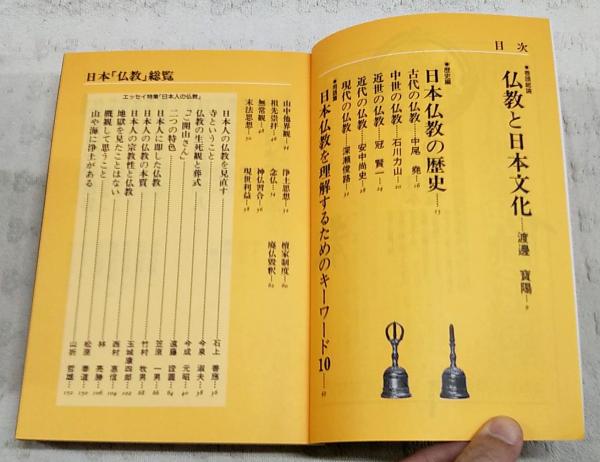 目 次
●巻頭総論
仏教と日本文化―渡邊 寶陽―9
●歴史編
日本仏教の歴史―15
古代の仏教―中尾 堯―16
中世の仏教―石川力山―20
近世の仏教―冠 賢一―24
近代の仏教―安中尚史―28
現代の仏教―深瀬俊路―32
●用語編
日本仏教を理解するためのキーワード10―43
日本「仏教」総覧
山中他界観―44
祖先崇拝―46
無常観―48
末法思想―50
浄土思想―52
念仏―54
神仏習合―56
現世利益―58
檀家制度―60
廃仏毀釈―62
エッセイ特集「日本人の仏教」
日本人の仏教を見直す 石上 善應…36
寺ということ 今泉 淑夫…38
仏教の生死観と葬式 今成 元昭…40
「ご開山さん」 遠藤 證圓…64
二つの特色 笠原 一男…66
日本人に即した仏教 竹村 牧男…68
日本人の仏教の本質 玉城康四郎…102
日本人の宗教性と仏教 西村 恵信…104
地獄を見たことはない 林 亮勝…106
概観して思うこと 松原 泰道…150
山や海に浄土がある 山折 哲雄…152